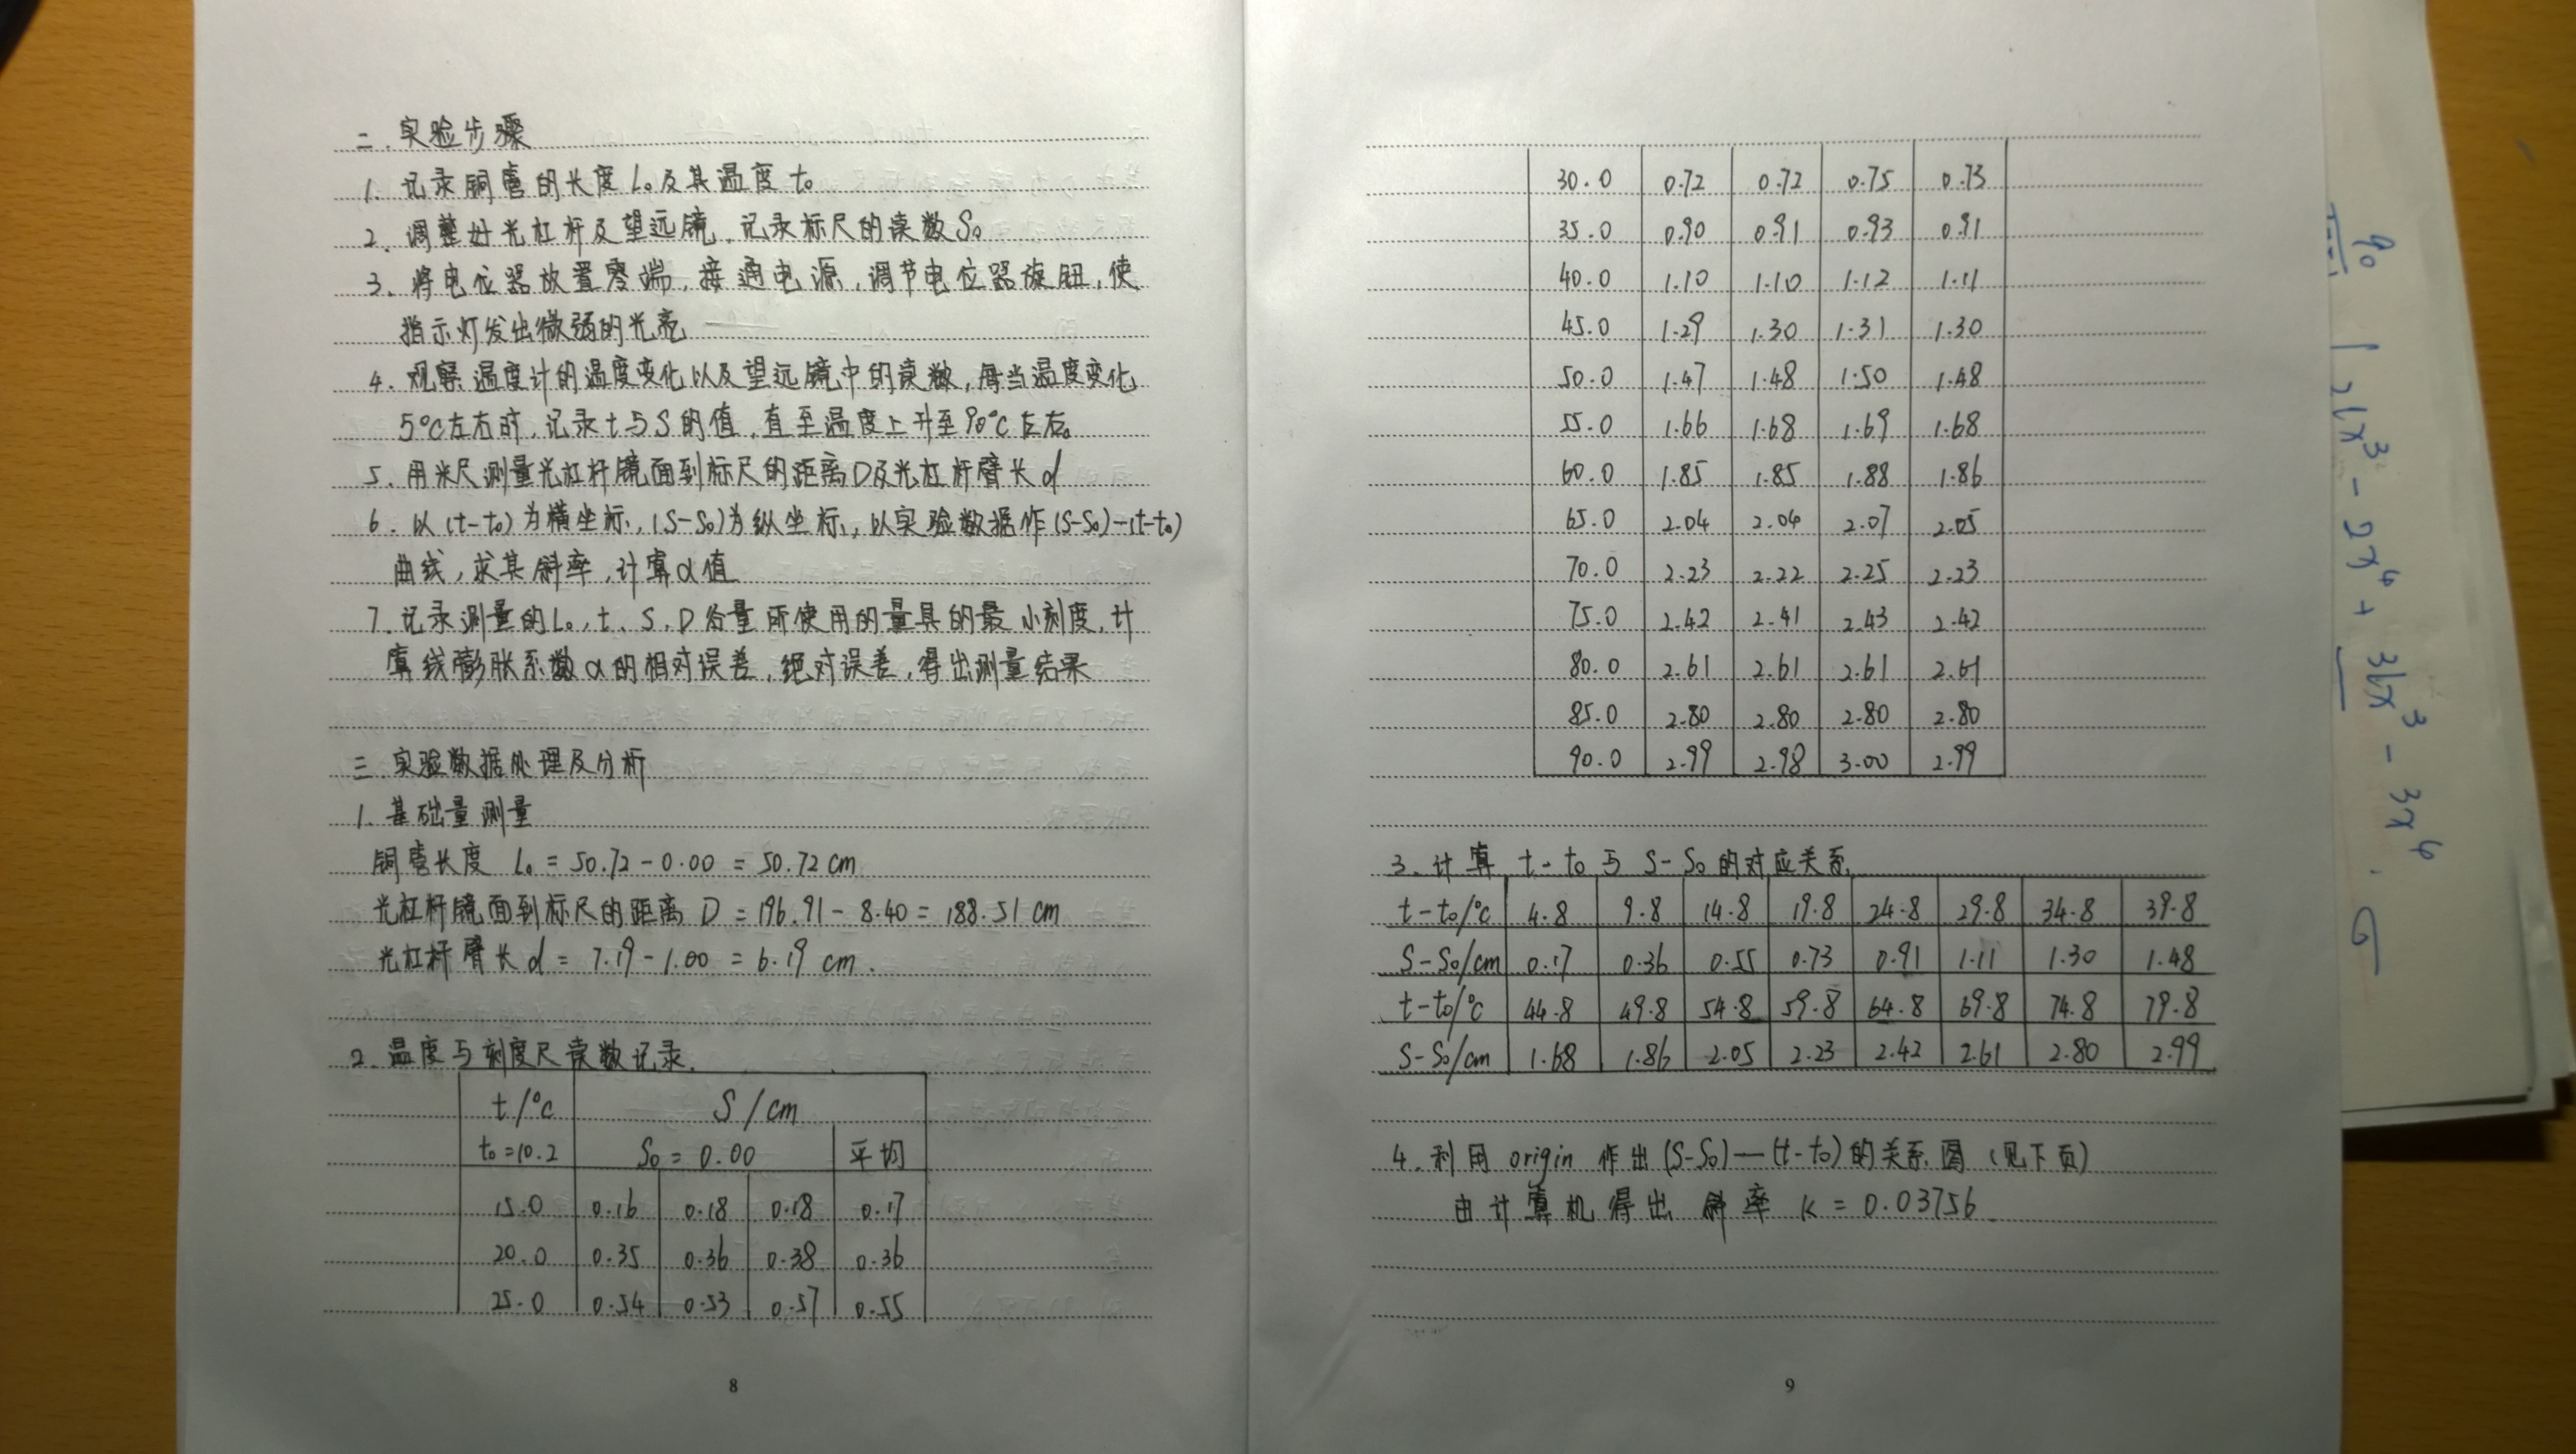 二.实验步骤
1.记录铜管的长度L₀及其温度t₀
2.调整好光杠杆及望远镜,记录标尺的读数S₀
3.将电位器放置零端,接通电源,调节电位器旋钮,使
指示灯发出微弱的光亮
4.观察温度计的温度变化以及望远镜中的读数,每当温度变化
5°C左右时,记录t与S的值,直至温度上升至90°C左右。
5.用米尺测量光杠杆镜面到标尺的距离D及光杠杆臂长d
6.以(t-t₀)为横坐标,(S-S₀)为纵坐标,以实验数据作(S-S₀)-(t-t₀)
曲线,求其斜率,计算α值
7.记录测量的L₀,t、S、D各量所使用的量具的最小刻度,计
算线膨胀系数α的相对误差,绝对误差,得出测量结果
三.实验数据处理及分析
1.基础量测量
铜管长度 L₀=50.72-0.00=50.72cm
光杠杆镜面到标尺的距离 D=196.91-8.40=188.51cm
光杠杆臂长d=7.19-1.00=6.19cm.
2.温度与刻度尺读数记录.
t/°C S/cm
t₀=10.2 S₀=0.00 平均
15.0 0.16 0.18 0.18 0.17
20.0 0.35 0.36 0.38 0.36
25.0 0.54 0.53 0.57 0.55
8
30.0 0.72 0.72 0.75 0.73
35.0 0.90 0.91 0.93 0.91
40.0 1.10 1.10 1.12 1.11
45.0 1.29 1.30 1.31 1.30
50.0 1.47 1.48 1.50 1.48
55.0 1.66 1.68 1.69 1.68
60.0 1.85 1.85 1.88 1.86
65.0 2.04 2.04 2.07 2.05
70.0 2.23 2.22 2.25 2.23
75.0 2.42 2.41 2.43 2.42
80.0 2.61 2.61 2.61 2.61
85.0 2.80 2.80 2.80 2.80
90.0 2.99 2.98 3.00 2.99
3.计算 t-t₀与S-S₀的对应关系.
t-t₀/°C 4.8 9.8 14.8 19.8 24.8 29.8 34.8 39.8
S-S₀/cm 0.17 0.36 0.55 0.73 0.91 1.11 1.30 1.48
t-t₀/°C 44.8 49.8 54.8 59.8 64.8 69.8 74.8 79.8
S-S₀/cm 1.68 1.86 2.05 2.23 2.42 2.61 2.80 2.99
4.利用origin作出(S-S₀)—(t-t₀)的关系图(见下页)
由计算机得出 斜率 K=0.03756
9